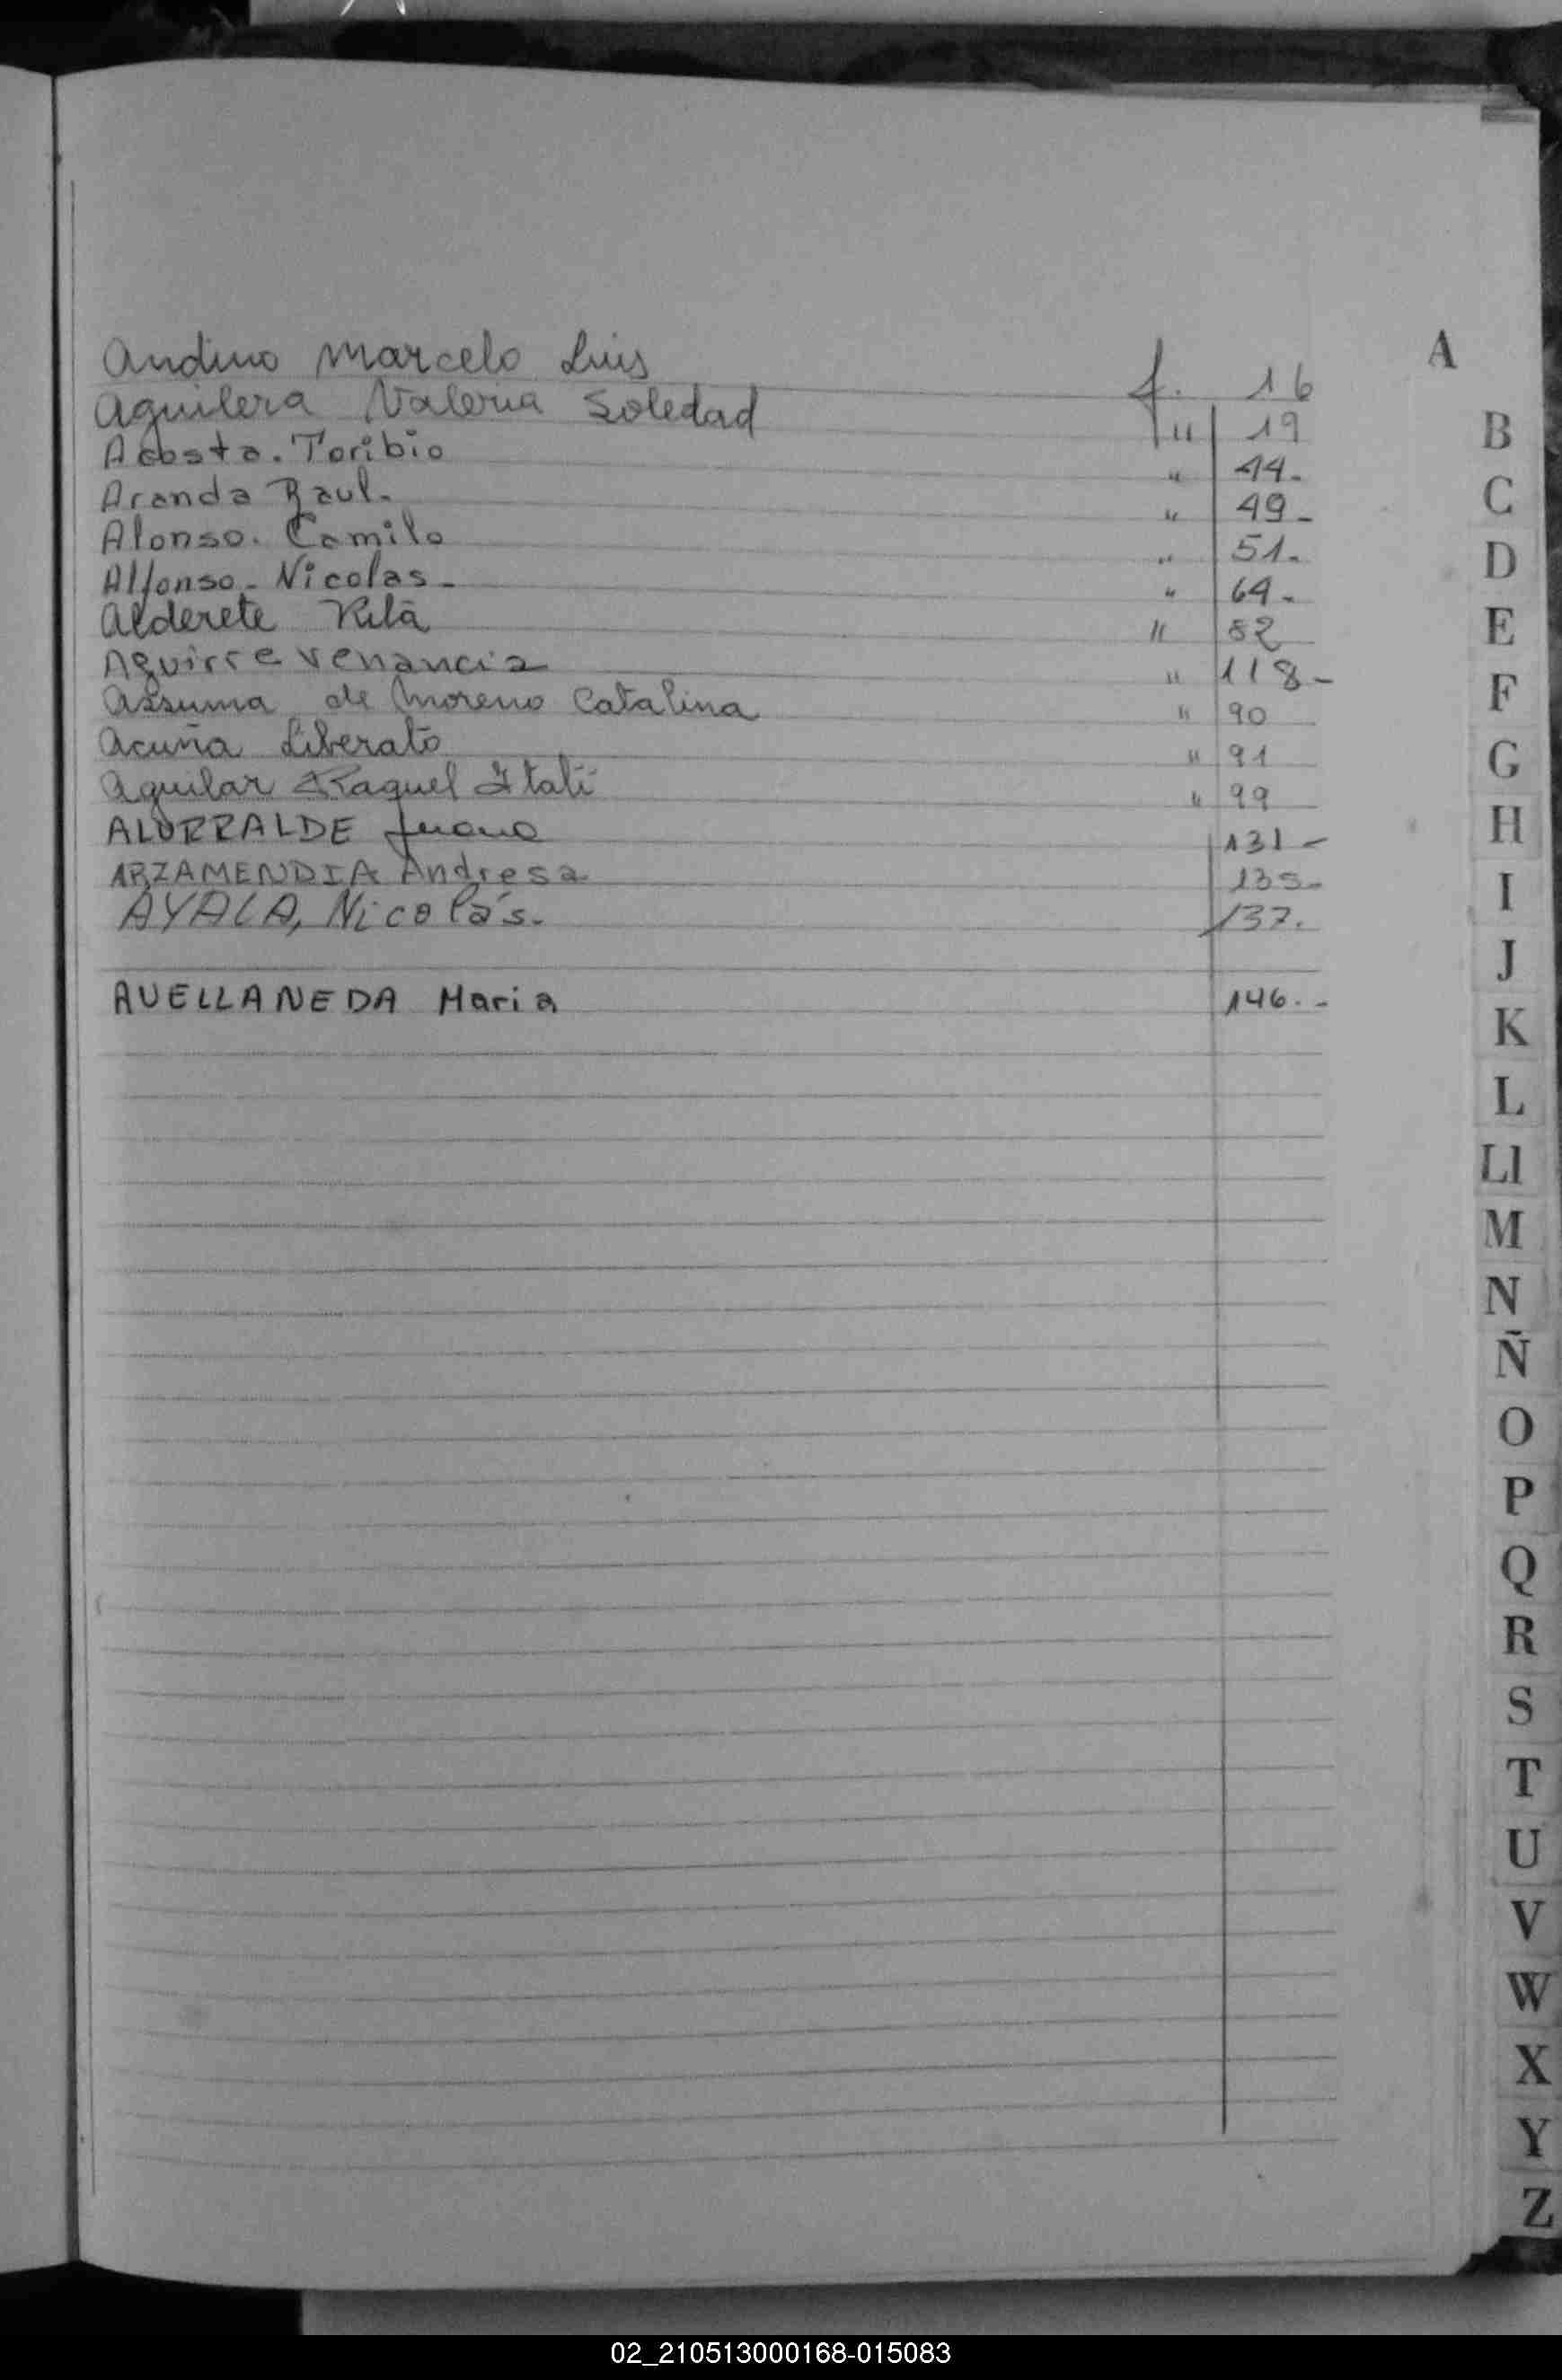 A
Andino Marcelo Luis f. 16
Aguilera Valeria Soledad " 19
Acosta. Toribio " 44.
Aranda Raul. " 49-
Alonso. Camilo " 51.
Alfonso- Nicolas- " 64-
Alderete Rita " 82
Aguirre Venancia " 118-
Assuma de Moreno Catalina " 90
Acuña Liberato " 91
Aguilar Raquel Itatí " 99
ALURRALDE Juana 131-
ARZAMENDIA Andresa 135-
AYALA, Nicolás. 137.
AVELLANEDA Maria 146.-
B
C
D
E
F
G
H
I
J
K
L
Ll
M
N
Ñ
O
P
Q
R
S
T
U
V
W
X
Y
Z
02_210513000168-015083